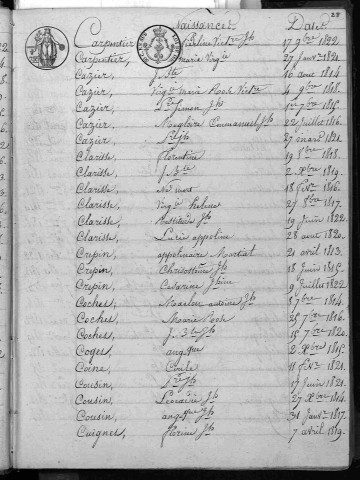 28
Naissances Date
Carpentier, Pauline Vict.re Jh 17 9bre 1822.
Carpentier, marie Virg.e 27 Janvr 1821.
Cazier, J. Bte 16 aout 1814.
Cazier, Virg.e marie Rose Vict.re 4 9bre 1818.
Cazier, Simon Jh 7bre 1815.
Cazier, Magloire Emmanuel Jh 22 Juillet 1816.
Cazier, 27 mars 1821.
Clarisse, florentine 19 1818.
Clarisse, J. Bte 2 Xbre 1819.
Clarisse, Né mort 18 févr 1816.
Clarisse, Virg.e Helene 27 8bre 1817.
Clarisse, Bastilde Jh 19 Juin 1822.
Clarisse, Lucie appoline 28 aout 1820.
Crepin, appolinaire Martial 21 avril 1813.
Crepin, Chrisostôme Jh 18 Juin 1815.
Crepin, Catherine 9 Juillet 1822.
Coches, antoine Jh 8 7bre 1814.
Coches, Marie Rose 25 7bre 1816.
Coches, J. Bte Jh 15 7bre 1820.
Coges, ang.que 2 Xbre 1815.
Coine, Cécile 11 févr 1821.
Cousin, 17 Juin 1821.
Cousin, Leocadie Jh 27 Xbre 1814.
Cousin, ang.que Jh 31 Janvr 1817.
Cuignet, florine Jh 7 avril 1819.